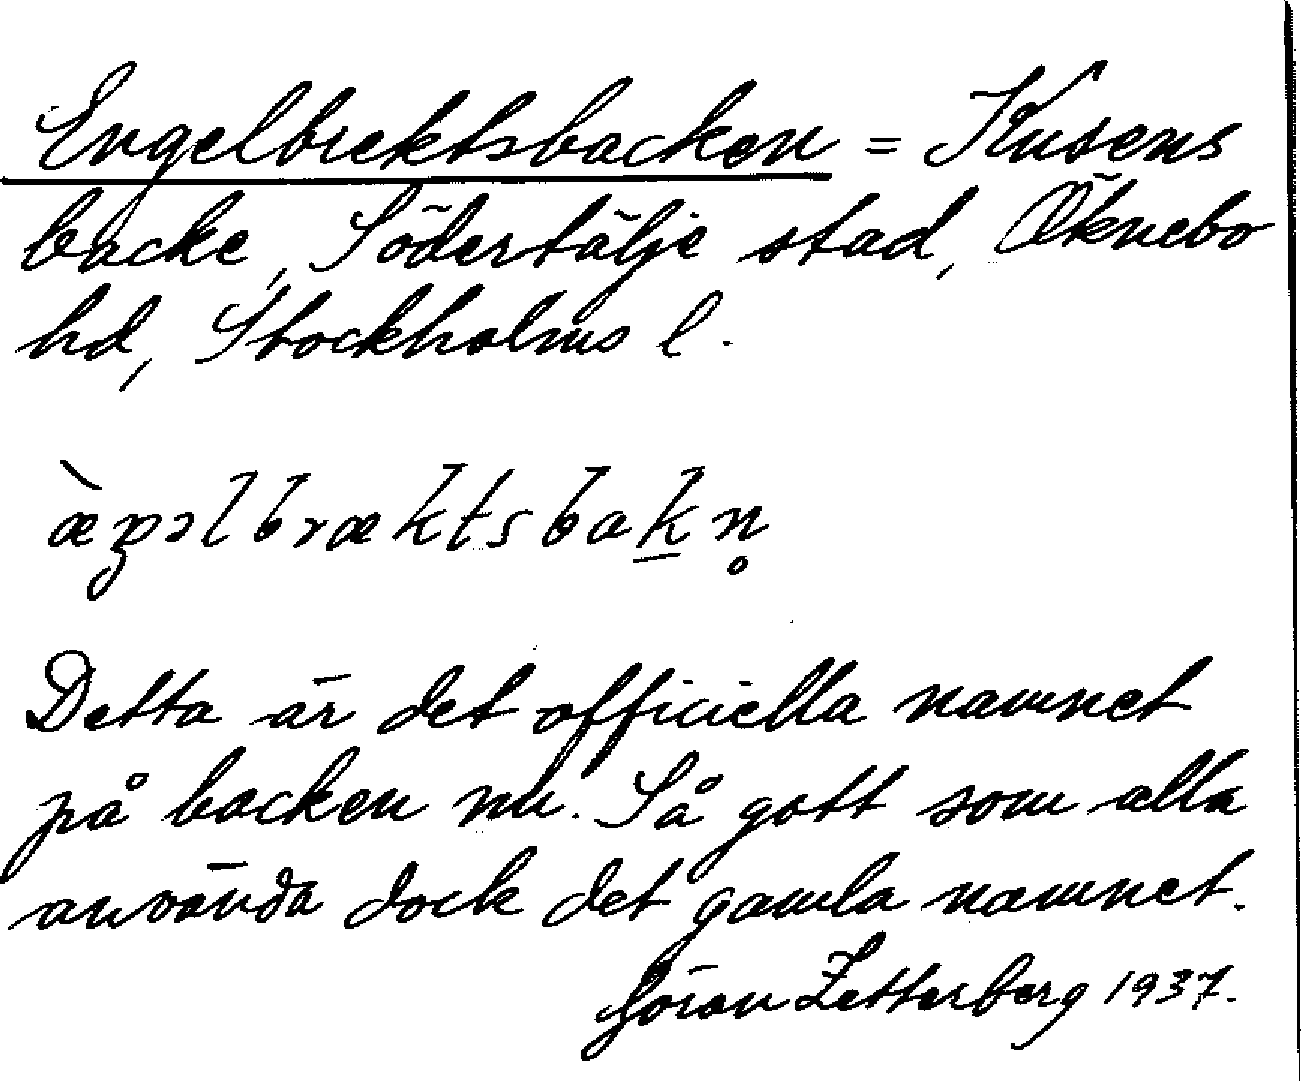 Engelbrektsbacken = Kusens
backe, Södertälje stad, Öknebo
hd, Stockholms l.
æ̀ŋəlbræktsbak̲n̥
Detta är det officiella namnet
på backen nu. Så gott som alla
använda dock det gamla namnet.
Göran Zetterberg 1937.